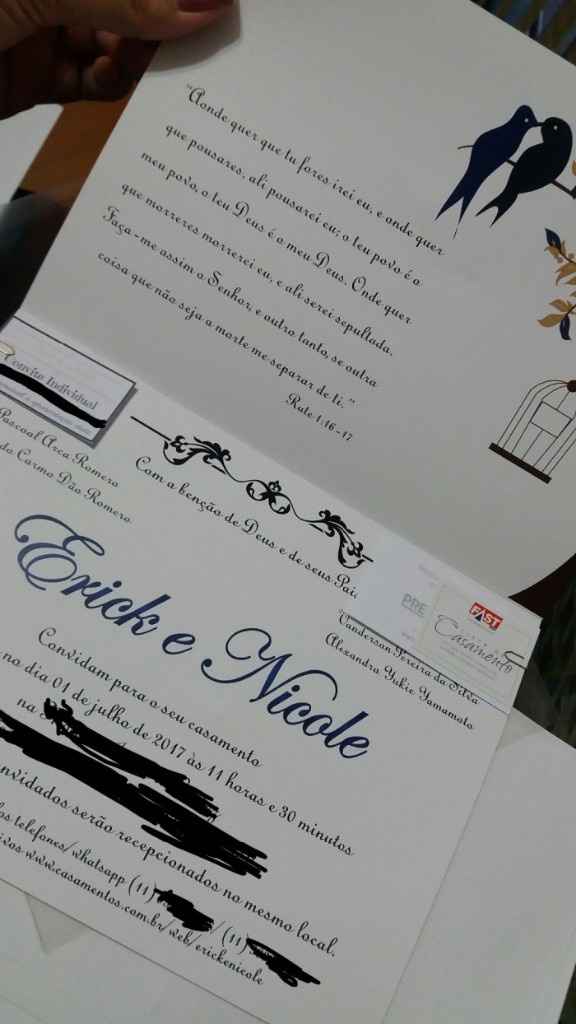 "Aonde quer que tu fores irei eu, e onde quer
que pousares, ali pousarei eu; o teu povo é o
meu povo, o teu Deus é o meu Deus. Onde quer
que morreres morrerei eu, e ali serei sepultada.
Faça-me assim o Senhor, e outro tanto, se outra
coisa que não seja a morte me separar de ti."
Rute 1:16-17
Convite Individual
Pascoal Arca Romero
do Carmo Dão Romero
Com a benção de Deus e de seus Pais
PRE
FAST
Casamento
Vanderson Pereira da Silva
Alexandra Yukie Yamamoto
Erick e Nicole
Convidam para o seu casamento
no dia 01 de julho de 2017 às 11 horas e 30 minutos
na
convidados serão recepcionados no mesmo local.
telefones/whatsapp (11) / (11)
www.casamentos.com.br/web/erickenicole